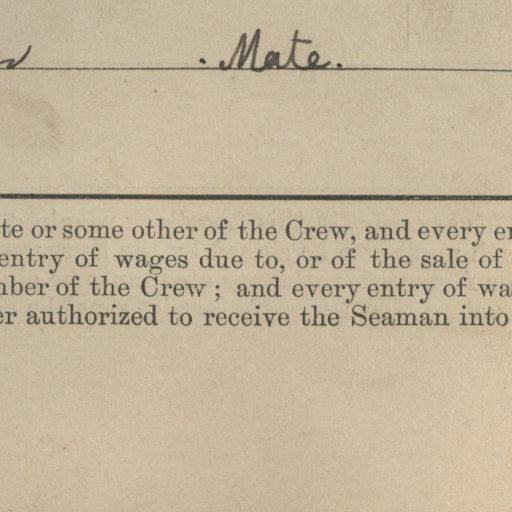 . Mate.
te or some other of the Crew, and every en
entry of wages due to, or of the sale of
nber of the Crew ; and every entry of wa
er authorized to receive the Seaman into